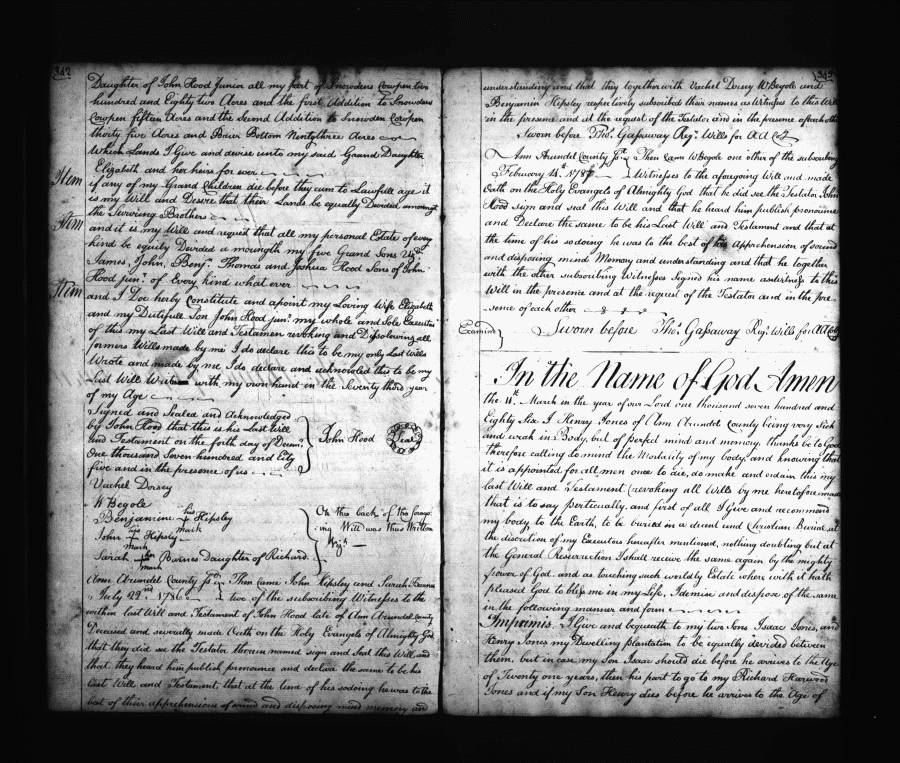 342
Daughter of John Hood Junior all my part of Snowdens Cowpen two
hundred and Eighty two Acres and the first Addition to Snowdens
Cowpen fifteen Acres and the Second Addition to Snowden Cowpen
thirty five Acres and Brier Bottom Ninty three Acres
Which Lands I Give and devise unto my said Grand Daughter
Elizabeth and her heirs for ever
Item if any of my Grand Children die before they cum to Lawfull age it
is my Will and Desire that their Lands be equally Devided amongst
the Surviving Brothers
Item and it is my Will and request that all my personal Estate of every
kind be equily Devided amoungth my five Grand Sons Viz.
James, John, Benj. Thomas and Joshua Hood Sons of John
Hood jun. of Every kind what ever
Item and I Doe herby Constitute and apoint my Loving Wife Elizabeth
and my Dutifull Son John Hood jun. my whole and Sole Executers
of this my Last Will and Testamen revoking and Dissoloving all
formers Wills made by me I do declare this to be my only Last Wills
Wrote and made by me I do declare and acknololed this to be my
Last Will with my own hand in the Seventy third year
of my Age
Signed and Sealed and Acknowledged
by John Hood that this is his Last Will
and Testament on the forth day of Decem.
One thousand Seven hundred, and Eity
five and in the presence of us
John Hood Seal
Vachel Dorsey
W Begole
Benjamine his mark Hipsley
John his mark Hipsley
Sarah her mark Barnes Daughter of Richard
On the back of the forego
ing Will was thus Written
Viz
Ann Arundel County Ss. Then Came John Hipsley and Sarah Barnes
July 22nd 1786 two of the subscribing Witnesses to the
within last Will and Testament of John Hood late of Ann Arundel County
Deceased and severally made Oath on the Holy Evangels of Almighty God
that they did see the Testator therein named sign and Seal this Will, and
that they heard him publish pronounce and declare the same to be his
Last Will and Testament, that at the time of his sodoing he was to the
best of their apprehensions of sound and disposing mind memory and
343
understanding and that they together with Vachel Dorsey W Begole and
Benjamin Hipsley respectively subscribed their names as Witness to this Will
in the presence and at the request of the Testator and in the presence of each other
Sworn before Tho. Gassaway Reg. Wills for AA Coty
Ann Arundel County Ss. Then Came W Begole one other of the subscribing
February 14. 1787 Witnesses to the aforegoing Will and made
Oath on the Holy Evangels of Almighty God that he did see the Testator John
Hood sign and seal this Will and that he heard him publish pronounce
and Declare the same to be his Last Will and Testament and that at
the time of his sodoing he was to the best of his Apprehension of sound
and disposing mind Memory and understanding and that he together
with the other subscribing Witnesses Signed his name as Witness to this
Will in the presence and at the request of the Testator and in the pre-
sence of each other
Examind
Sworn before Tho. Gassaway Reg. Wills for AA Coty
In the Name of God Amen
the 11th March in the year of our Lord one thousand seven hundred and
Eighty Six I Henry Jones of Ann Arundel County being very Sick
and weak in Body, but of perfect mind and memory, thanks be to God
therefore calling to mind the Mortality of my body, and knowing that
it is appointed for all men once to die, do make and ordain this my
last Will and Testament (revoking all Wills by me heretofore made
that is to say perticually. and first of all I Give and recommend
my body to the Earth, to be buried in a decent and Christian Burial, at
the discretion of my Executors hereafter mentioned, nothing doubting but at
the General Resurruction I shall receive the same again by the mighty
power of God. and as touching such worldly Estate where with it hath
pleased God to bless me in my life, I demise and dispose of the same
in the following manner and form
Imprimis. I Give and bequeath to my two Sons Isaac Jones, and
Henry Jones my Dwelling plantation to be equally devided between
them, but in case my Son Isaac should die before he arrives to the Age
of Twenty one years, then his part to go to my Richard Harwood
Jones and if my Son Henry dies before he arrives to the Age of